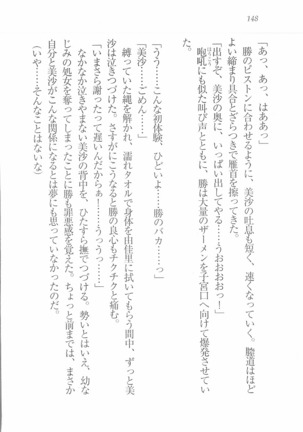 148
「あっ、あっ、はああっ」
勝のピストンに合わせるように、美沙の吐息も短く、速くなっていく。膣道はほど
よい締まり具合とざらつきで雁首を擦ってきた。
「出すぞ、美沙の奥に、いっぱい出してやる……うおおおおっ!」
咆吼にも似た叫び声とともに、勝は大量のザーメンを子宮口へ向けて爆発させてい
た。
「うう……こんな初体験、ひどいよ……勝のバカ……っ」
「美沙……ごめん……」
縛っていた縄を解かれ、濡れタオルで身体を由佳里に拭いてもらう間中、ずっと美
沙は泣きつづけた。さすがにこうなると勝の良心もチクチクと痛む。
「いまさら謝ったって遅いんだからぁ!……うっうっ……」
なかなか泣きやまない美沙の背中を、ひたすら撫でつづける。勢いとはいえ、幼な
じみの処女を奪ってしまったことに勝も罪悪感を覚えた。ちょっと前までは、まさか
自分と美沙がこんな関係になるとは夢にも思っていなかったのだ。
(いや……そんなことはないな)